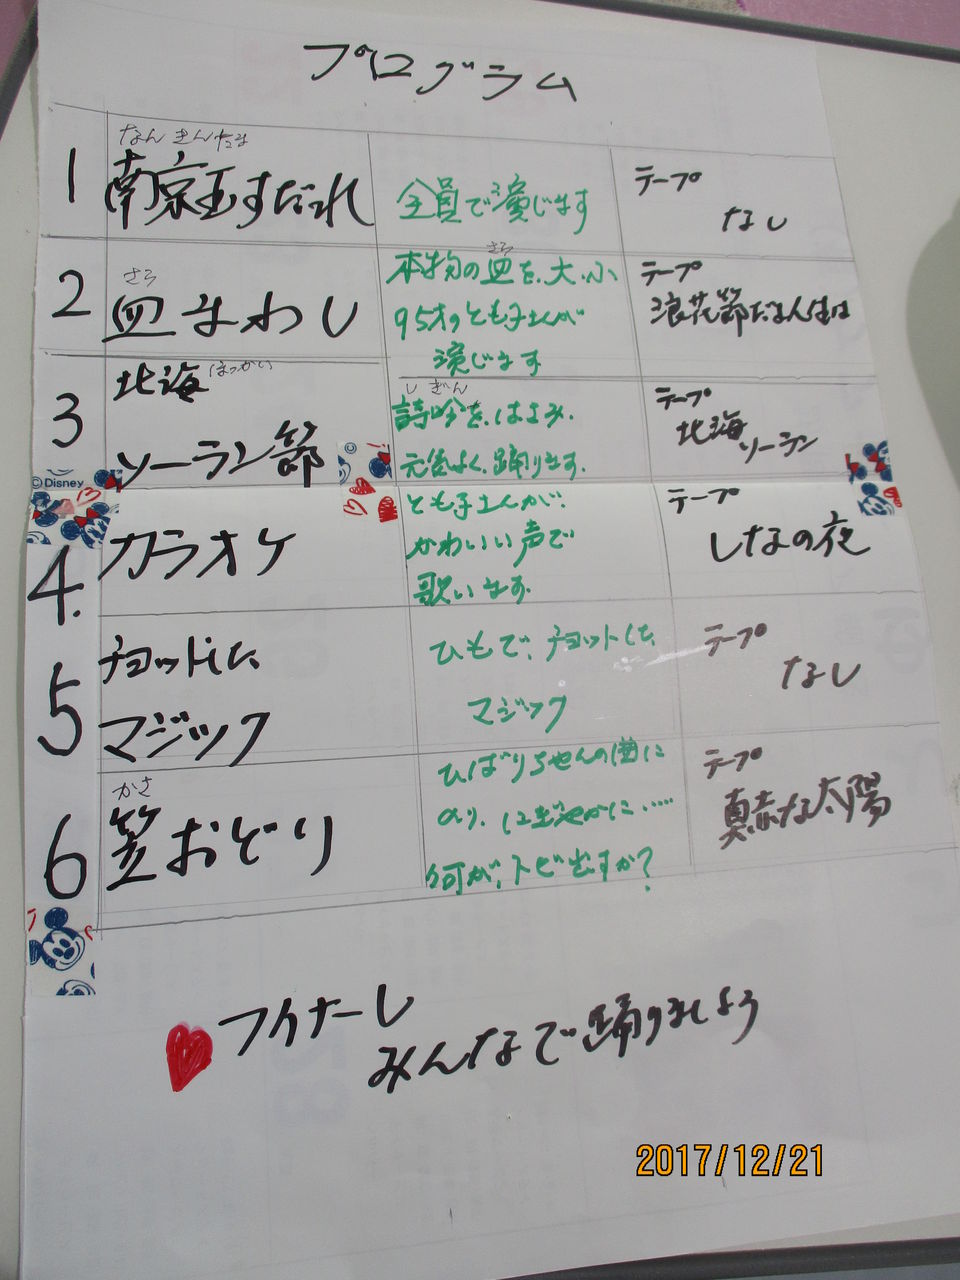 プログラム
1
なんきんたま
南京玉すだれ
全員で演じます
テープ
なし
2
さら
皿まわし
さら
本物の皿を、大、小
95才のとも子さんが
演じます
テープ
浪花節だよ人生は
3
北海 ほっかい
ソーラン節
しぎん
詩吟を、はさみ、
元気よく、踊ります。
テープ
北海
ソーラン
©Disney
4.
カラオケ
とも子さんが、
かわいい声で
歌います。
テープ
しなの夜
5
チョットした
マジック
ひもで、チョットした
マジック
テープ
なし
6
かさ
笠おどり
ひばりちゃんの曲に
のり、にぎやかに……
何が、トビ出すか？
テープ
真赤な太陽
フィナーレ
みんなで踊りましょう
2017/12/21